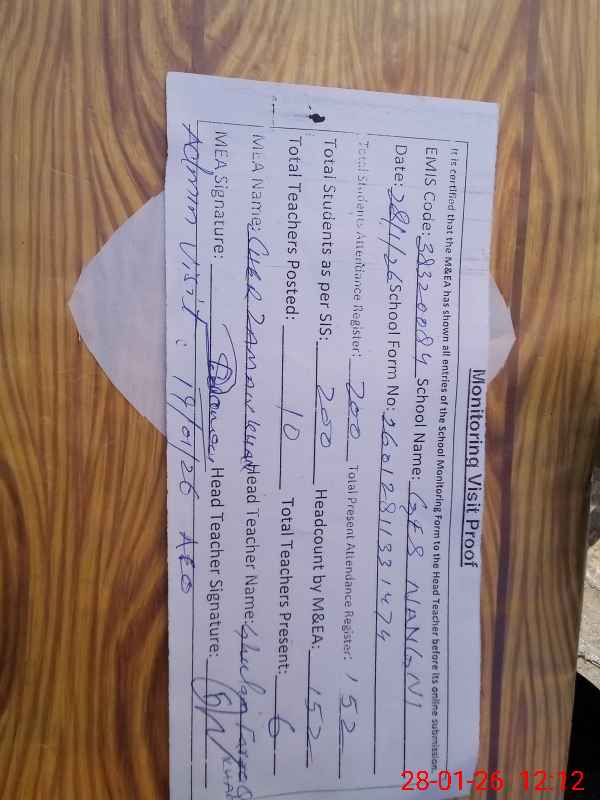 Monitoring Visit Proof
It is certified that the M&EA has shown all entries of the School Monitoring Form to the Head Teacher before its online submission.
EMIS Code: 38320084 School Name: GES NANGNI
Date: 28/1/26 School Form No: 2601281133 1474
Total Students Attendance Register: 200 Total Present Attendance Register: 152
Total Students as per SIS: 200 Headcount by M&EA: 152
Total Teachers Posted: 10 Total Teachers Present: 6
MEA Name: ZAMAN KHAN Head Teacher Name: Ghulam
MEA Signature: Head Teacher Signature:
Admin Visit: 19/01/26 AEO
28-01-26 12:12